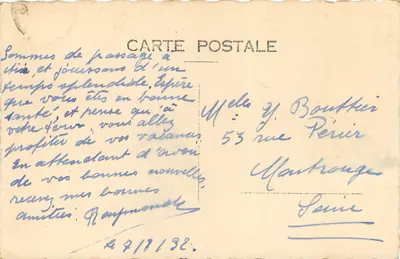 CARTE POSTALE
Sommes de passage à
et jouissons d'un
temps splendide. Espère
que vous êtes en bonne
santé, et pense qu'à
votre tour, vous allez
profiter de vos vacances.
En attendant d'avoir
de vos bonnes nouvelles,
recevez mes bonnes
amitiés. Raymonde
le 7/8/32.
Melle Y. Bouttier
53 rue Périer
Montrouge
Seine